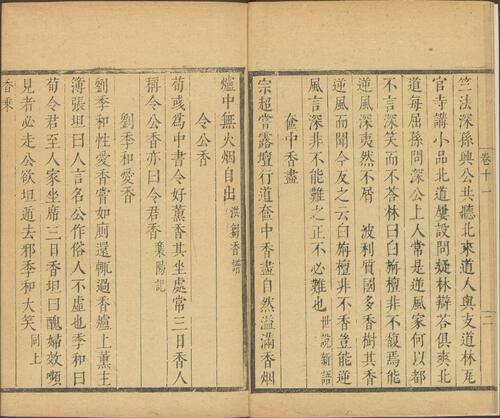 卷十一
二
竺法深孫興公共聽北來道人與支道林瓦
官寺講小品北道屢設問疑林辯荅俱爽北
道每屈孫問深公上人常是逆風家何以都
不言深笑而不荅林曰白旃檀非不馥焉能
逆風深夷然不屑　波利質國多香樹其香
逆風而聞今反之云白旃檀非不香豈能逆
風言深非不能難之正不必難也 世說新語
奩中香盡
宗超嘗露壇行道奩中香盡自然溢滿香烟
爐中無火烟自出 洪芻香譜
令公香
荀彧爲中書令好薰香其坐處常三日香人
稱令公香亦曰令君香 襄陽記
劉季和愛香
劉季和性愛香嘗如厠還輒過香爐上薰主
簿張坦曰人言名公作俗人不虛也季和曰
荀令君至人家坐席三日香坦曰醜婦效顰
見者必走公欲坦遁去邪季和大笑 同上
香乘